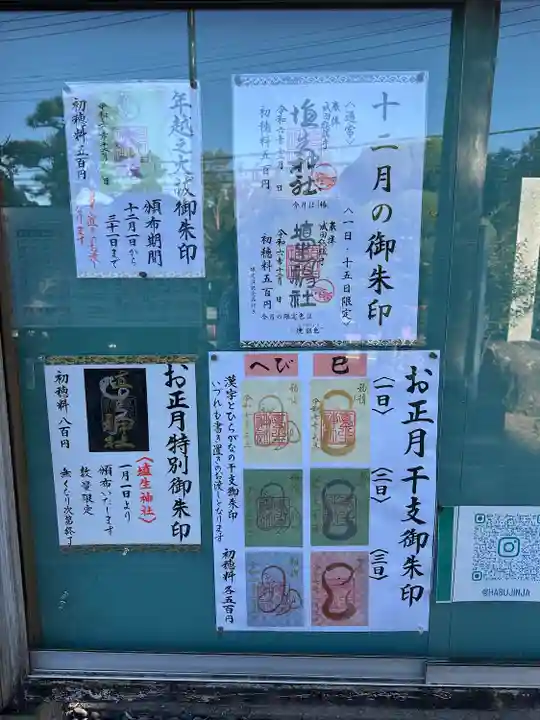 年越之大祓御朱印
頒布期間
十二月一日から
三十一日まで
初穂料五百円
十二月の御朱印
〈通常〉
埴生神社
初穂料五百円
〈一日・十五日限定〉
埴生神社
初穂料五百円
今月の限定色は
お正月特別御朱印
〈埴生神社〉
一月一日より
頒布いたします
数量限定
無くなり次第終了
初穂料 八百円
お正月干支御朱印
(一日)
(二日)
(三日)
巳
へび
漢字とひらがなの干支御朱印
いづれも書き置きのお渡しとなります
初穂料 各五百円
@HABUJINJA